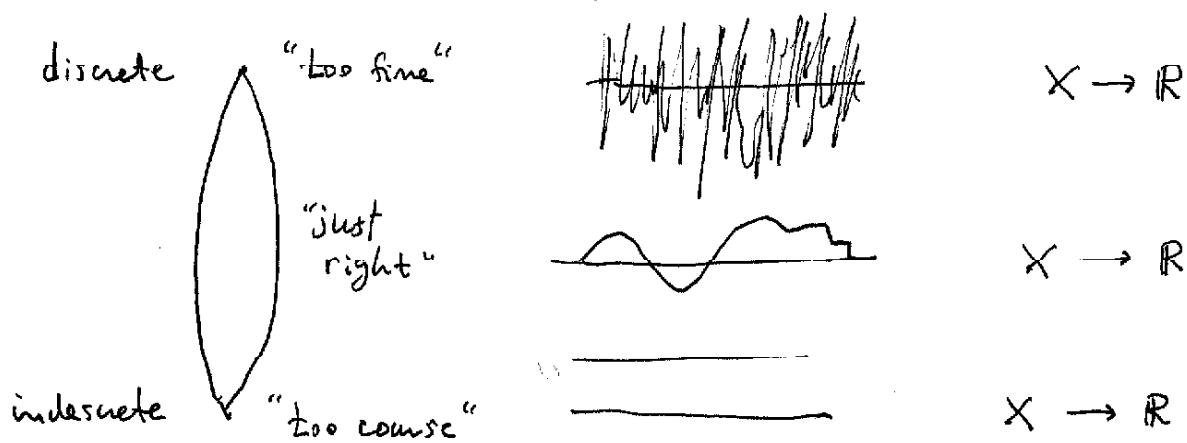 discrete "too fine" X → ℝ
"just
right" X → ℝ
indescrete "too course" X → ℝ